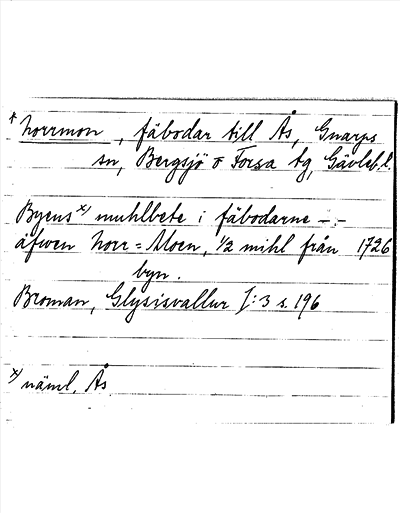 * Norrmon, fäbodar till Ås, Gnarps
sn, Bergsjö o Forsa tg, Gävleb. l.
Byens x) muhlbete i fäbodarne -.-
äfwen Norr=Moen, 1/2 mihl från 1726
byn.
Broman, Glysisvallur I:3 s. 196
x) näml. Ås